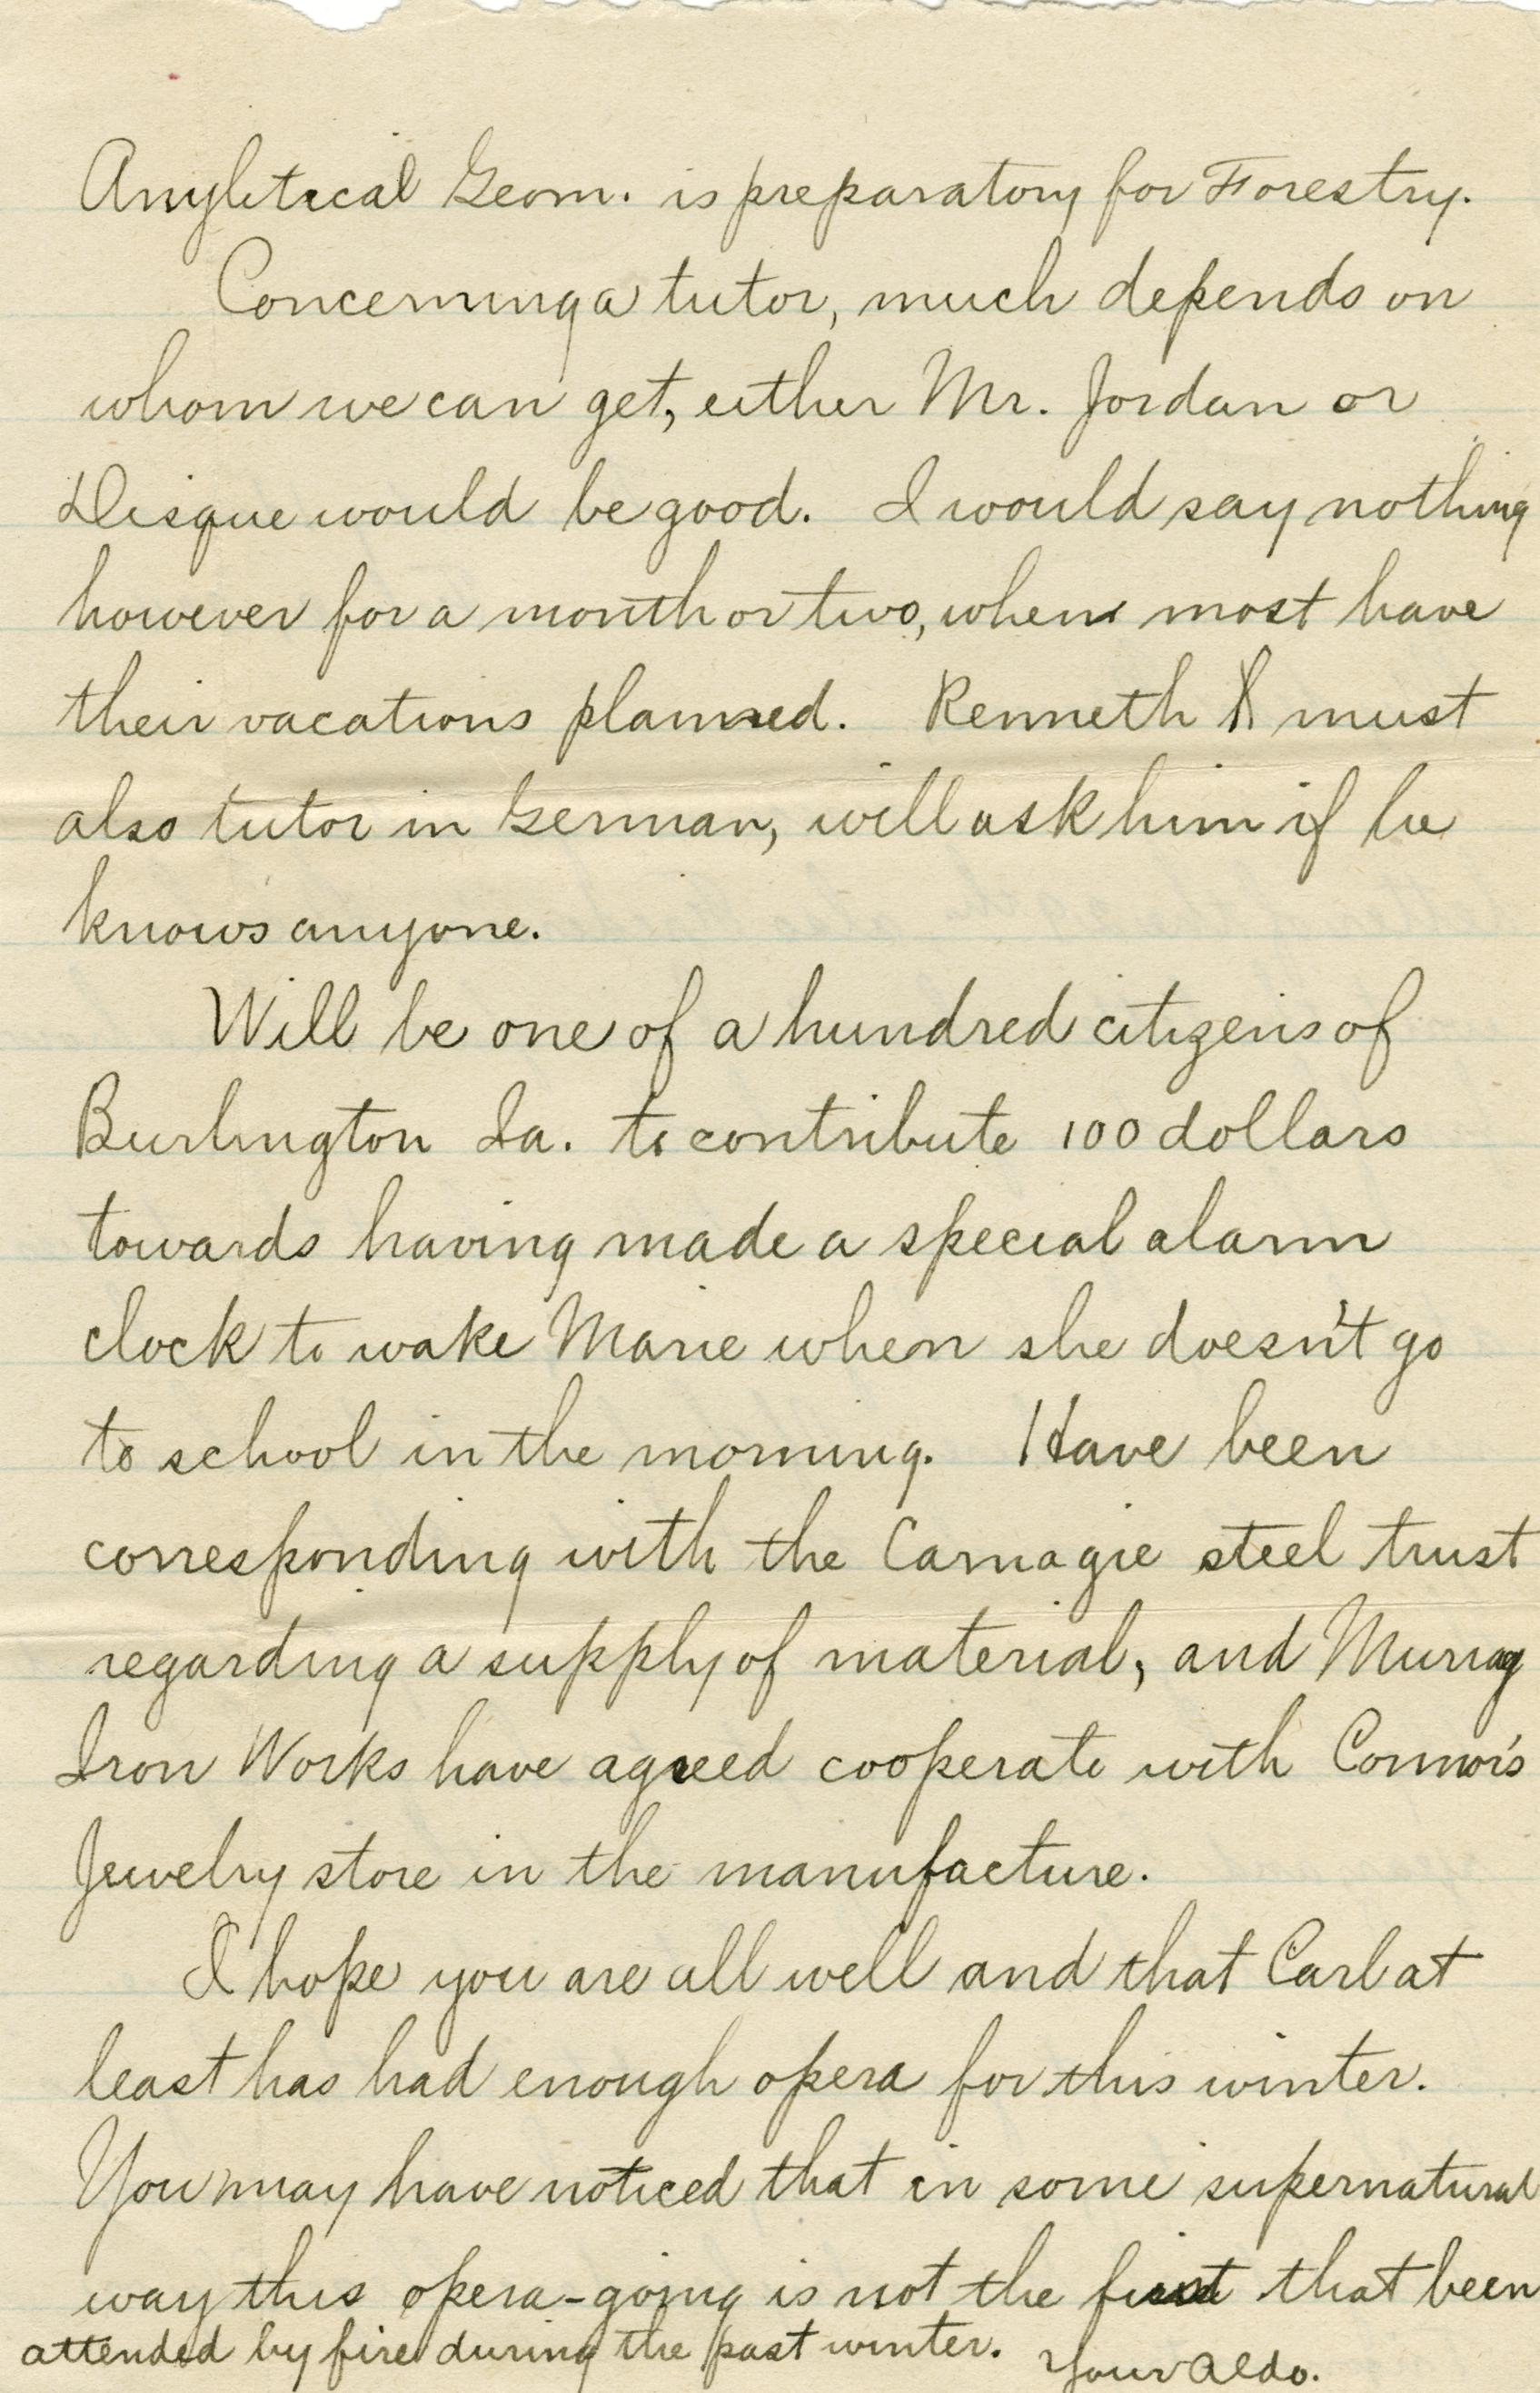 Anyletical Geom. is preparatory for Forestry.
Concerning a tutor, much depends on
whom we can get, either Mr. Jordan or
Disque would be good. I would say nothing
however for a month or two, when most have
their vacations planned. Kenneth must
also tutor in German, will ask him if he
knows anyone.
Will be one of a hundred citizens of
Burlington Ia. to contribute 100 dollars
towards having made a special alarm
clock to wake Marie when she doesn't go
to school in the morning. Have been
corresponding with the Carnagie steel trust
regarding a supply of material, and Murray
Iron Works have agreed cooperate with Connor's
Jewelry store in the manufacture.
I hope you are all well and that Carl at
least has had enough opera for this winter.
You may have noticed that in some supernatural
way this opera-going is not the first that been
attended by fire during the past winter. Your Aldo.